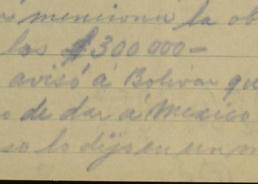 menciona la ob
los $300000-
avisó á Bolívar qu
o de dar á Mexico
so lo dijo en un